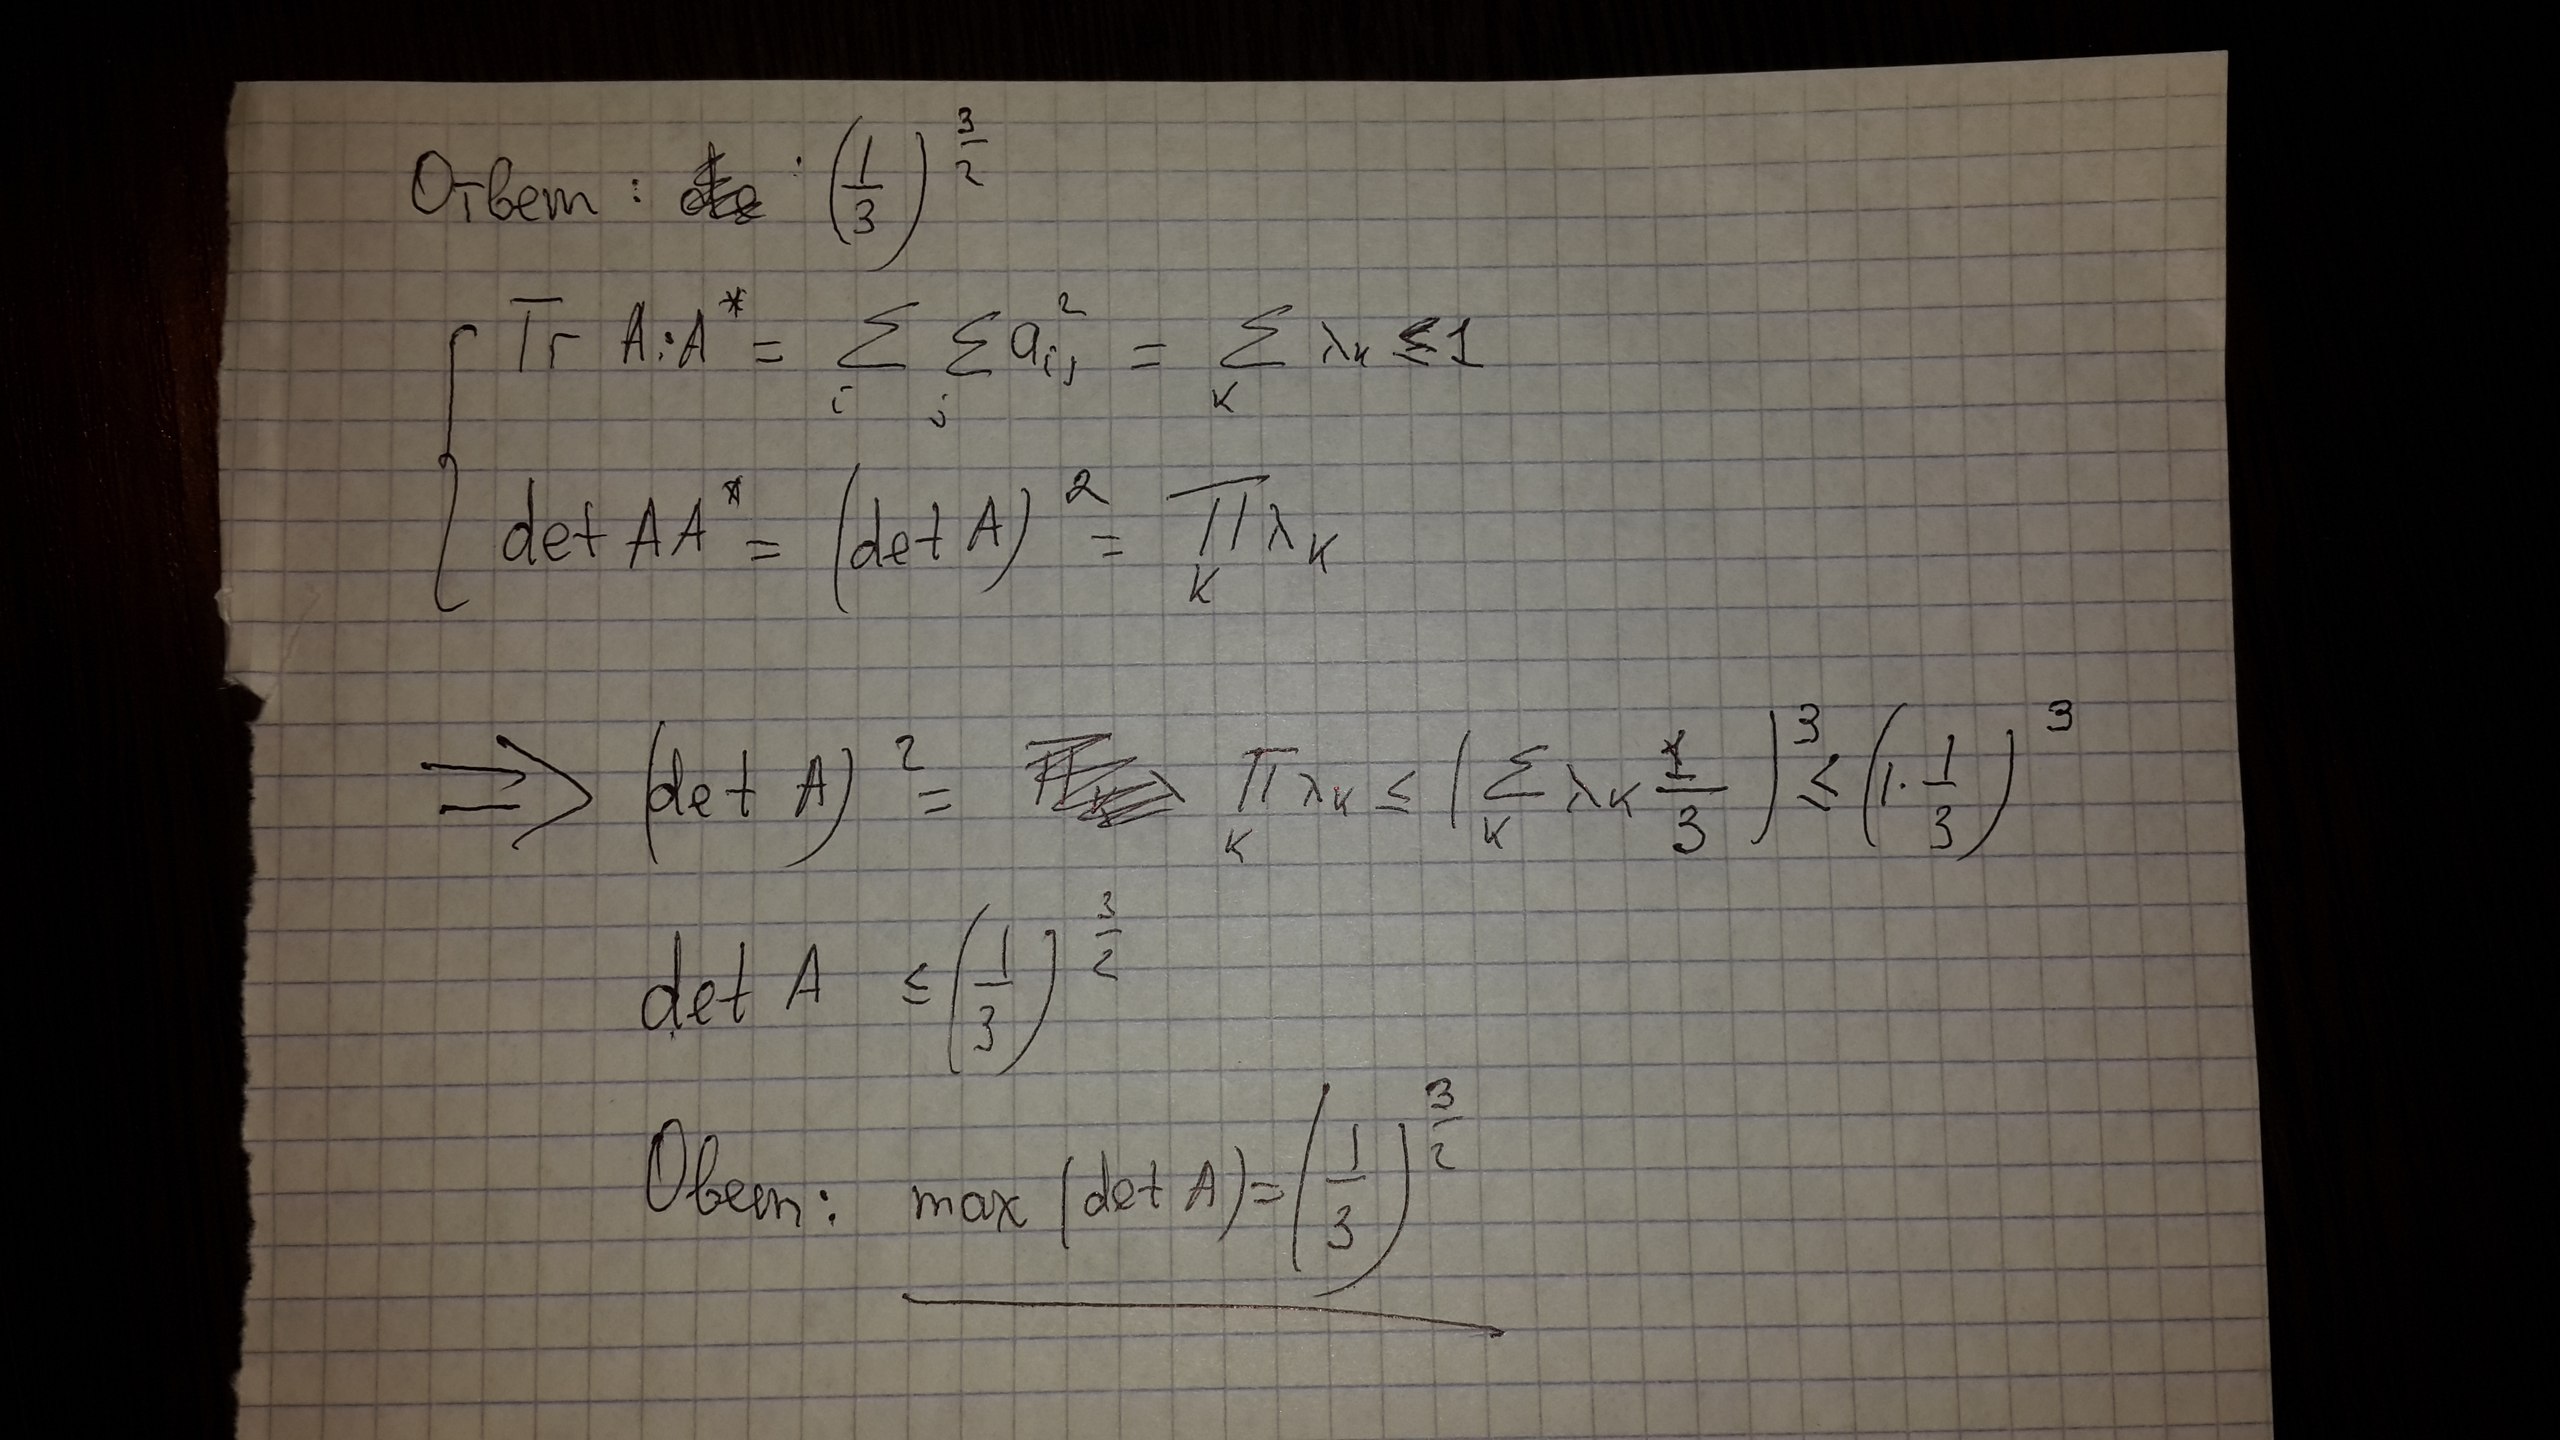 Ответ: : (1/3)^(3/2)
Tr A·A* = Σ_i Σ_j a_ij^2 = Σ_k λ_k ≤ 1
det AA* = (det A)^2 = ∏_k λ_k
⇒ (det A)^2 = ∏_k λ_k ≤ (Σ_k λ_k 1/3)^3 ≤ (1·1/3)^3
det A ≤ (1/3)^(3/2)
Овет: max (det A) = (1/3)^(3/2)